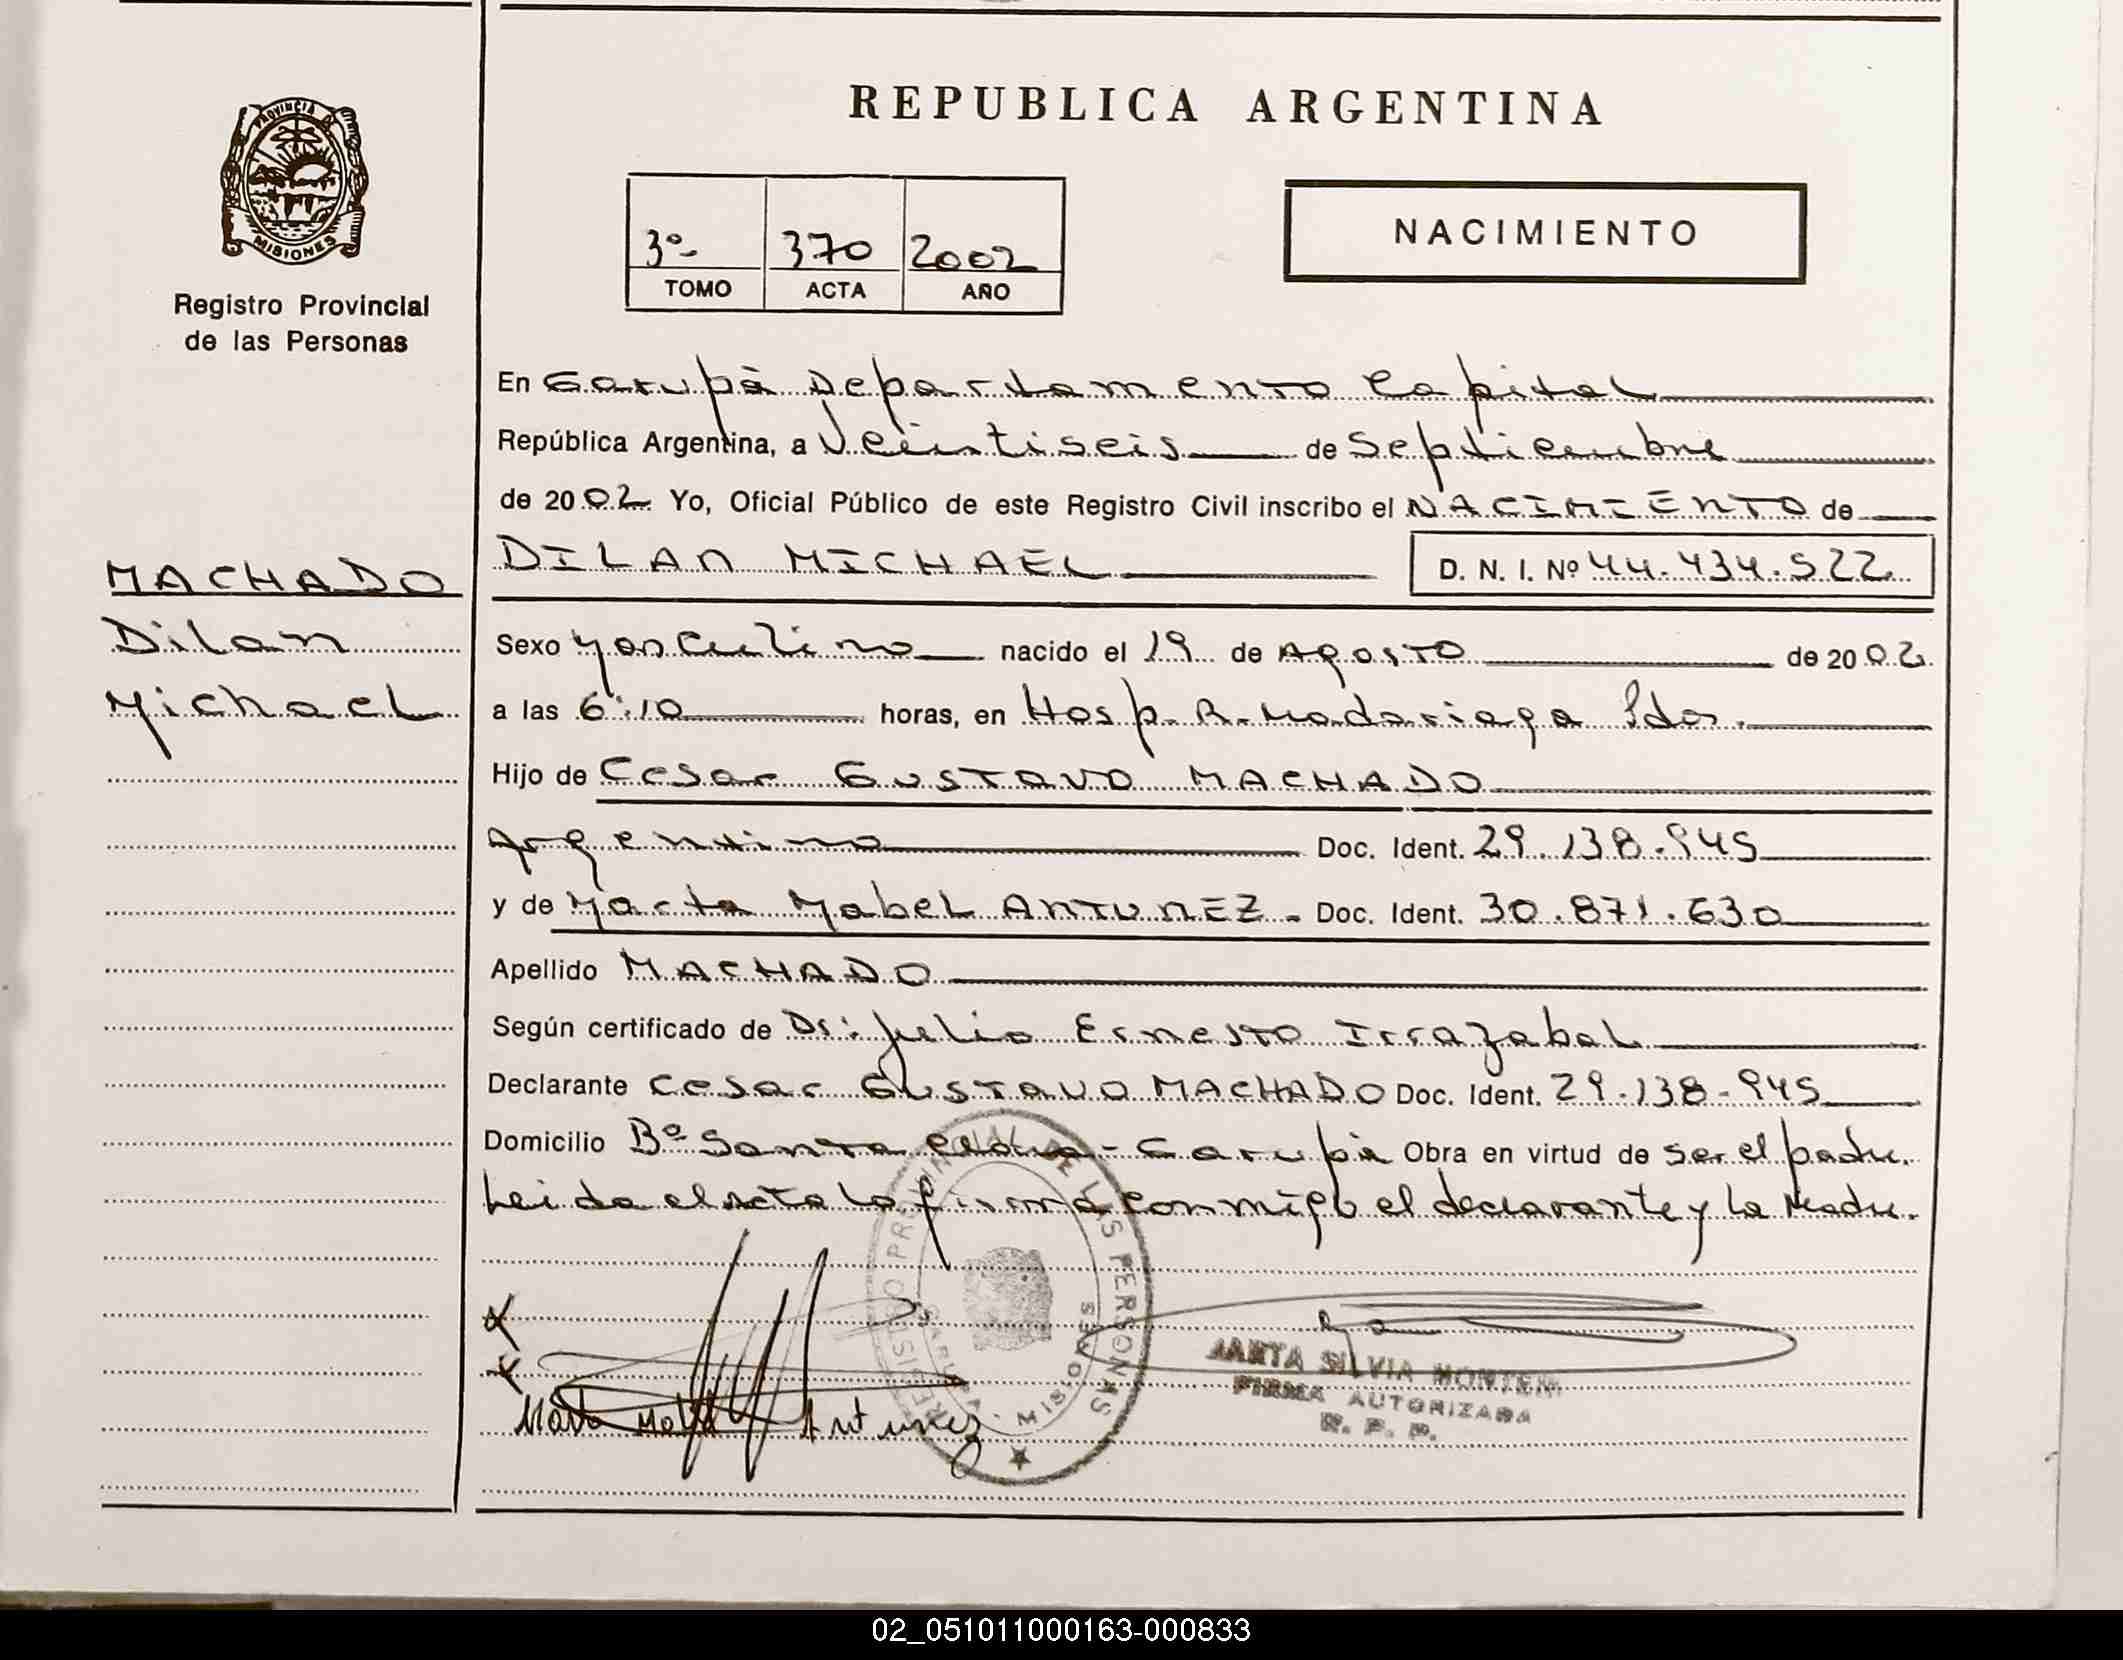 REPUBLICA ARGENTINA
PROVINCIA DE
MISIONES
Registro Provincial
de las Personas
3º 370 2002
TOMO ACTA AÑO
NACIMIENTO
En Garupá Departamento Capital
República Argentina, a Veintiseis de Septiembre
de 2002 Yo, Oficial Público de este Registro Civil inscribo el NACIMIENTO de
DILAN MICHAEL D. N. I. Nº 44.434.522
MACHADO
Dilan
Michael
Sexo Masculino nacido el 19 de Agosto de 2002
a las 6:10 horas, en Hosp. R. Madariaga Pdas.
Hijo de Cesar GUSTAVO MACHADO
Argentino Doc. Ident. 29.138.945
y de Marta Mabel ANTUNEZ - Doc. Ident. 30.871.630
Apellido MACHADO
Según certificado de Dr: Julio Ernesto Irrazabal
Declarante Cesar GUSTAVO MACHADO Doc. Ident. 29.138-945
Domicilio Bº Santa - Garupá Obra en virtud de ser el padre.
Leida el acta la firma conmigo el declarante y la Madre.
REGISTRO PROVINCIAL DE LAS PERSONAS
MISIONES
MARTA SILVIA
FIRMA AUTORIZADA
R. P. P.
Antunez
02_051011000163-000833